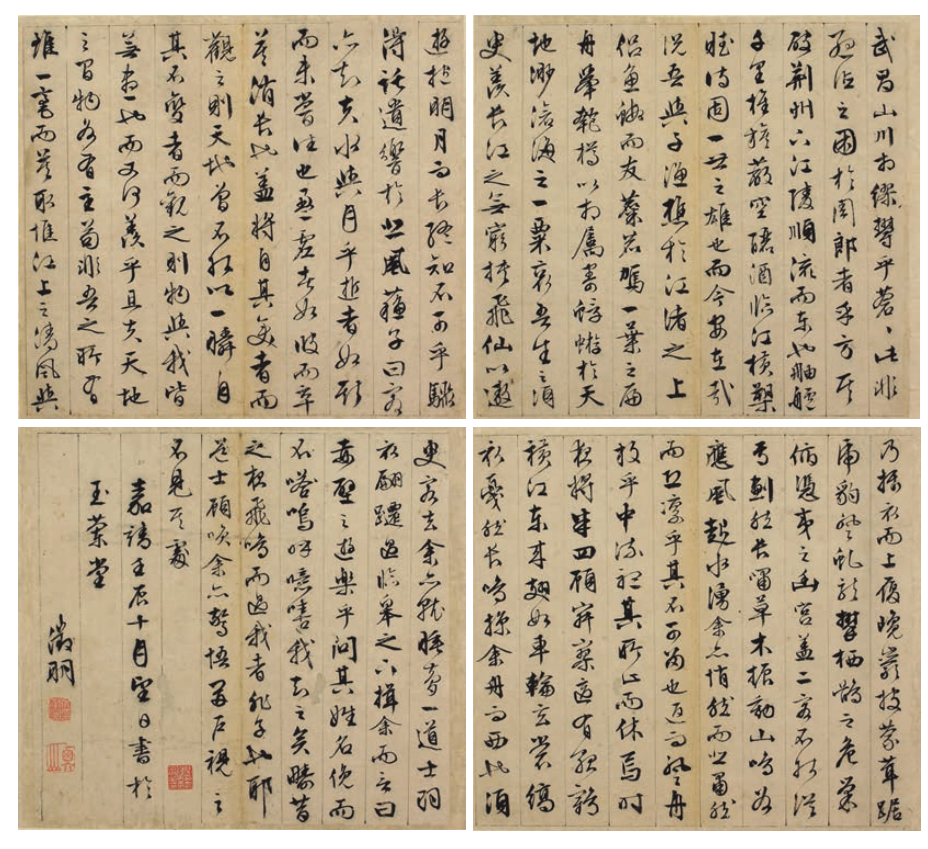 武昌山川相繆鬱乎蒼〻此非
孟德之困於周郎者乎方其
破荆州下江陵順流而東也舳艫
千里旌旗蔽空釃酒臨江橫槊
賦詩固一世之雄也而今安在哉
況吾與子漁樵於江渚之上
侶魚蝦而友麋鹿駕一葉之扁
舟舉匏樽以相屬寄蜉蝣於天
地渺滄海之一粟哀吾生之須
臾羨長江之無窮挾飛仙以遨
遊抱明月而長終知不可乎驟
得託遺響於悲風蘇子曰客
亦知夫水與月乎逝者如斯
而未嘗往也盈虛者如彼而卒
莫消長也蓋將自其變者而
觀之則天地曾不能以一瞬自
其不變者而觀之則物與我皆
無盡也而又何羨乎且夫天地
之間物各有主苟非吾之所有
雖一毫而莫取惟江上之清風與
乃攝衣而上履巉巖披蒙茸踞
虎豹登虬龍攀栖鶻之危巢
俯馮夷之幽宮蓋二客不能從
焉劃然長嘯草木振動山鳴谷
應風起水湧余亦悄然而悲肅然
而恐凜乎其不可留也返而登舟
放乎中流聽其所止而休焉時
夜將半四顧寂寥適有孤鶴
橫江東來翅如車輪玄裳縞
衣戛然長鳴掠余舟而西也須
臾客去余亦就睡夢一道士羽
衣翩躚過臨皋之下揖余而言曰
赤壁之遊樂乎問其姓名俛而
不答嗚呼噫嘻我知之矣疇昔
之夜飛鳴而過我者非子也耶
道士顧笑余亦驚悟開戶視之
不見其處
嘉靖壬辰十月望日書於
玉蘭堂
徵明